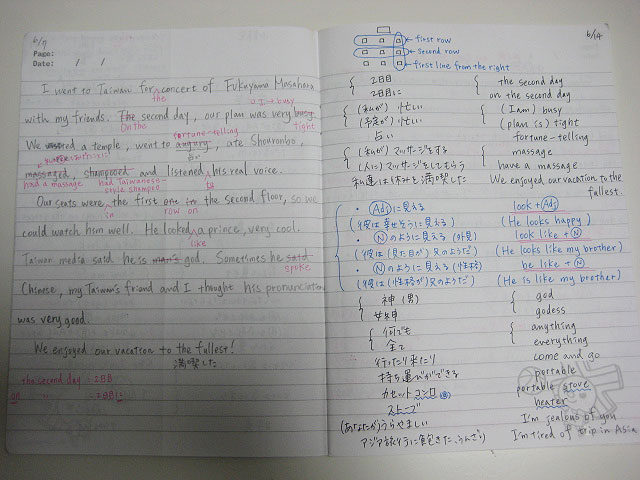 6/7
Page:
Date: / /
I went to Taiwan for a concert of Fukuyama Masaharu
with my friends. The second day, our plan was very busy.
the
On the
tight
We a temple, went to augury, ate Shouronbo,
fortune-telling
占い
massaged, shampooed and listened his real voice.
had a massage
had Taiwanese-style shampoo
to
Our seats were the first one to the second floor, so we
in
row on
could watch him well. He looked a prince, very cool.
like
Taiwan media said he is man's god. Sometimes he said
spoke
Chinese, my Taiwan's friend and I thought his pronunciation
was very good.
We enjoyed our vacation to the fullest!
満喫した
the second day 2日目
on 〃 2日目に
6/14
first row
second row
first line from the right
2日目 the second day
2日目に on the second day
(私が) 忙しい (I am) busy
(予定が) 忙しい (plan is) tight
占い fortune-telling
(私が) マッサージをする massage
(人に) マッサージをしてもらう have a massage
私達は休みを満喫した We enjoyed our vacation to the fullest.
・Adjに見える look + Adj
(彼は幸せそうに見える) (He looks happy)
・Nのように見える (外見) look like + N
(彼は(見た目が)兄のようだ) (He looks like my brother)
・Nのように見える (性格) be like + N
(彼は(性格が)兄のようだ) (He is like my brother)
神 (男) god
女神 godess
何でも anything
全て everything
行ったり来たり come and go
持ち運びができる portable
カセットコンロ portable stove
ストーブ heater
(あなたが)うらやましい I'm jealous of you
アジア旅行に飽きた、うんざり I'm tired of trip in Asia